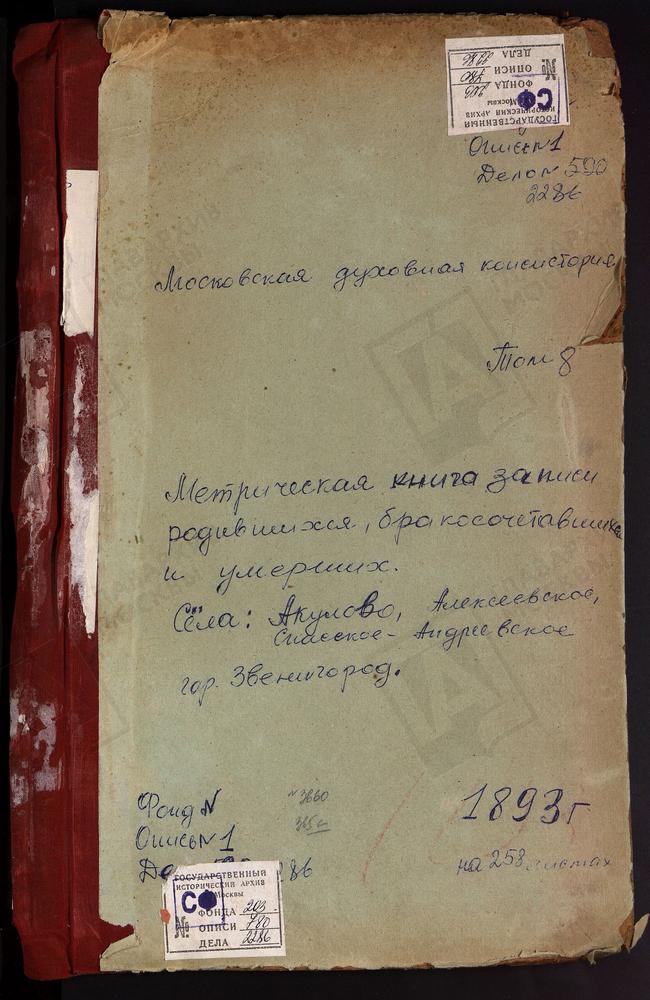 ГОСУДАРСТВЕННЫЙ
ИСТОРИЧЕСКИЙ АРХИВ
г. Москвы
СФ
ФОНДА 203
№ ОПИСИ 780
ДЕЛА 2286
Опись N 1
Дело N 590
2286
Московская духовная консистория
Том 8
Метрическая книга записи
родившихся, бракосочетавшихся
и умерших.
Сёла: Акулово, Алексеевское,
Спасское-Андреевское
гор. Звенигород.
Фонд N
Опись N 1
1893 г
N 3660
365
на 258 листах
ГОСУДАРСТВЕННЫЙ
ИСТОРИЧЕСКИЙ АРХИВ
г. Москвы
СФ
ФОНДА 203
№ ОПИСИ 780
ДЕЛА 2286